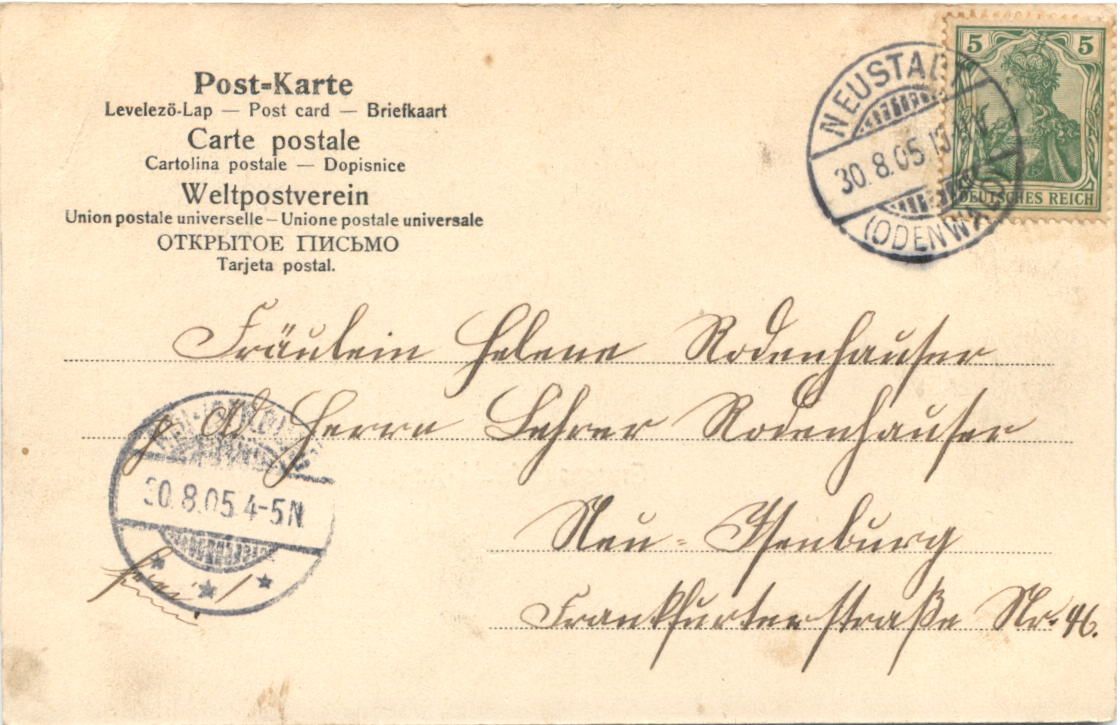 Post-Karte
Levelező-Lap — Post card — Briefkaart
Carte postale
Cartolina postale — Dopisnice
Weltpostverein
Union postale universelle – Unione postale universale
ОТКРЫТОЕ ПИСЬМО
Tarjeta postal.
5 5
DEUTSCHES REICH
NEUSTADT
30.8.05.
(ODENWALD)
Fräulein Helene Rodenhauser
p. Ad. Herrn Lehrer Rodenhauser
Neu-Isenburg
Frankfurterstraße Nr. 46.
30.8.05.4-5N